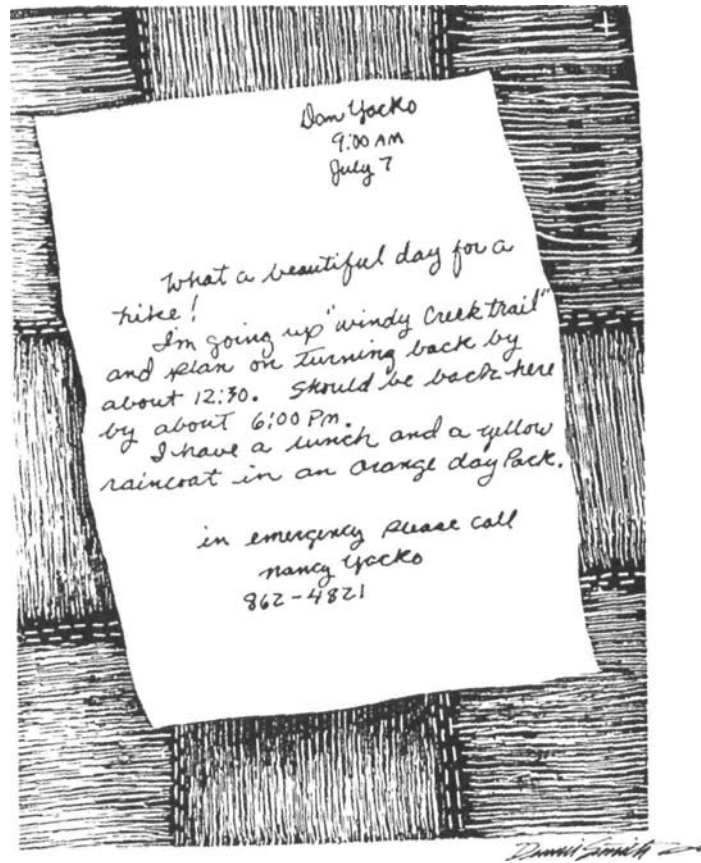 Dan Yacko
9:00 AM
July 7
What a beautiful day for a
hike!
I'm going up "windy Creek trail"
and plan on turning back by
about 12:30. Should be back here
by about 6:00 Pm.
I have a lunch and a yellow
raincoat in an orange day Pack.
in emergency please call
nancy Yacko
862-4821